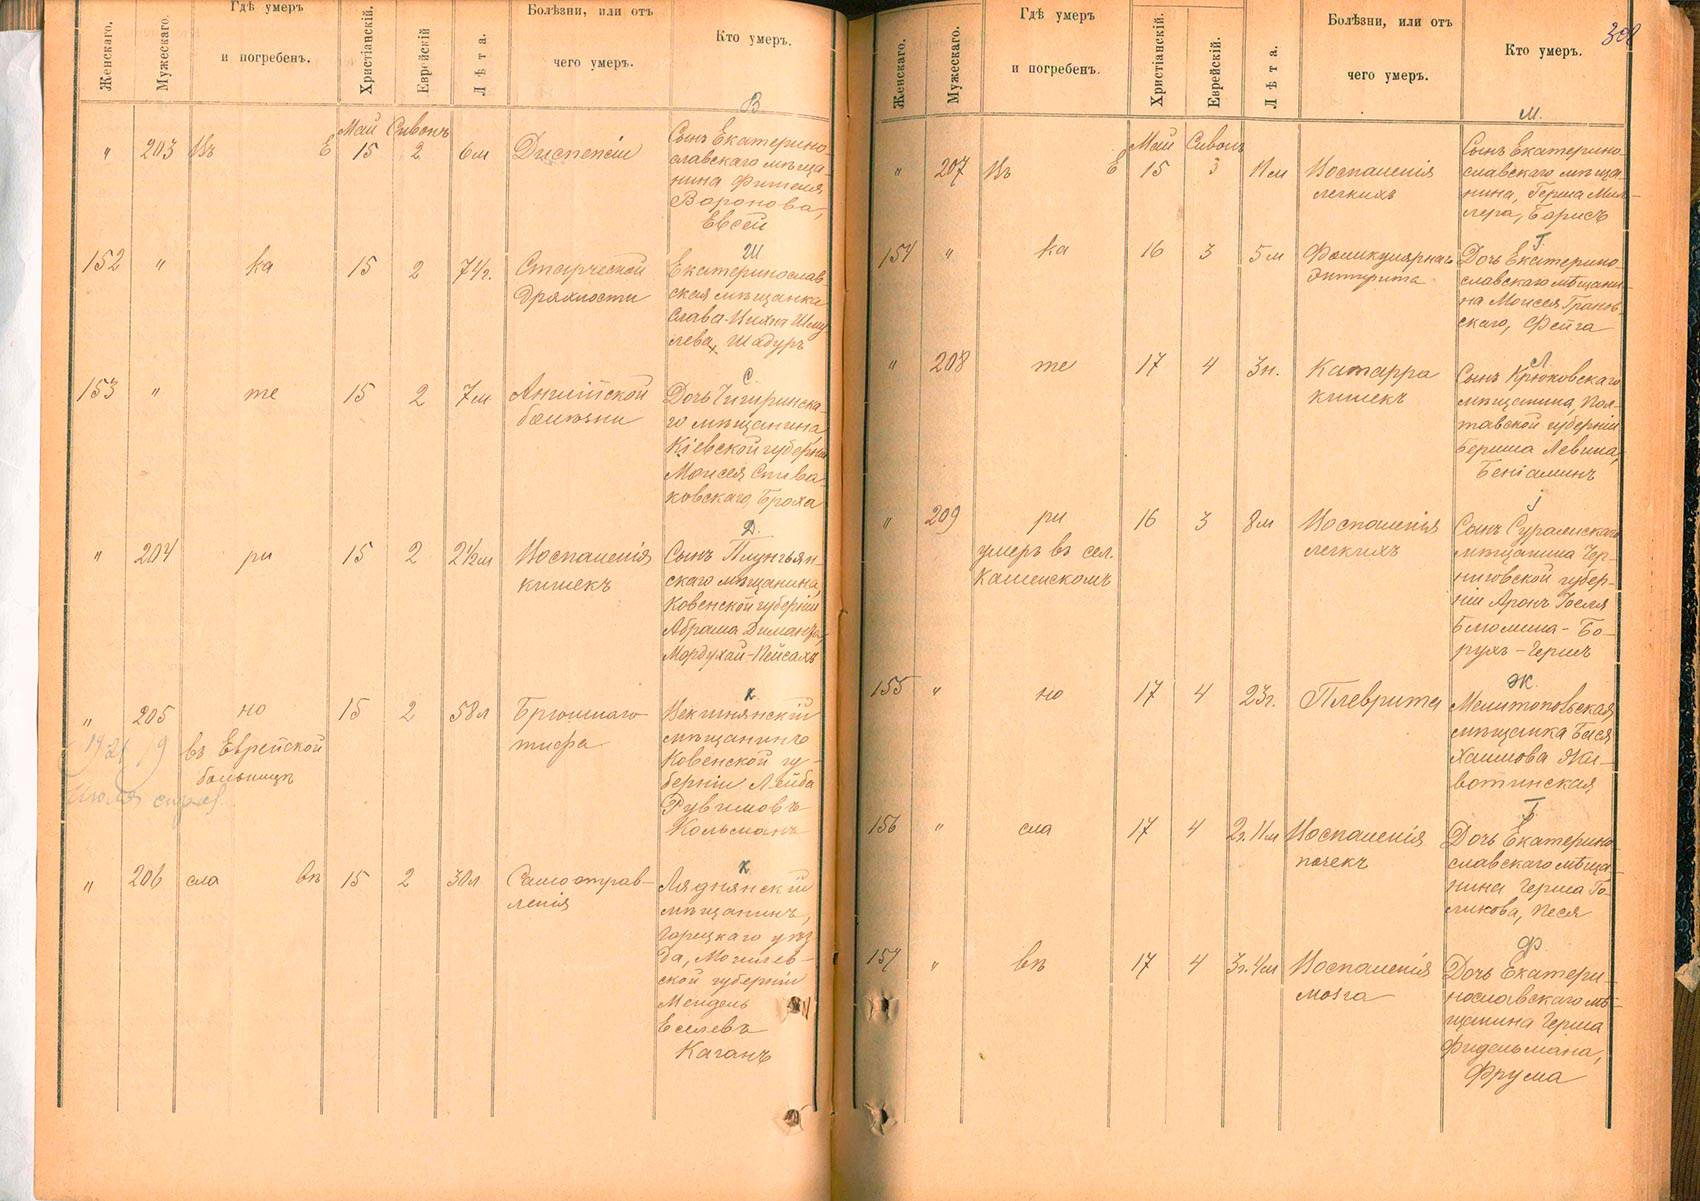 Женскаго.
Мужескаго.
Гдѣ умеръ
и погребенъ.
Христіанскій.
Еврейскій
Лѣта.
Болѣзни, или отъ
чего умеръ.
Кто умеръ.
В
Май Сивонъ
" 203 Въ Е 15 2 6м Диспепсіи
Сынъ Екатерино-
славскаго мѣща-
нина Фишеля
Воронова,
Евсей
Ш
152 " ка 15 2 74г. Старческой
дряхлости
Екатеринослав-
ская мѣщанка
Слава-Цихна Шму
лева, Шадуръ
С
153 " те 15 2 7м Англійской
болѣзни
Дочь Чигиринска-
го мѣщанина
Кіевской губерніи
Моисея Спива-
ковскаго, Броха
Д
" 204 ри 15 2 2½м Воспаленія
кишекъ
Сынъ Плунгьян-
скаго мѣщанина,
Ковенской губерніи
Абрама Диманта,
Мордухай-Пейсахъ
К
" 205 но 15 2 58л Брюшнаго
тифа
въ Еврейской
больницѣ
Векшнянскій
мѣщанинъ
Ковенской гу-
берніи Лейба
Рувимовъ
Кольманъ
К
" 206 сла вѣ 15 2 30л Самоотрав-
ленія
Ляднянскій
мѣщанинъ,
Горецкаго уѣз
да, Могилев-
ской губерніи
Мендель
Еселевъ
Каганъ
308
Женскаго.
Мужескаго.
Гдѣ умеръ
и погребенъ.
Христіанскій.
Еврейскій.
Лѣта.
Болѣзни, или отъ
чего умеръ.
Кто умеръ.
М.
Май Сивонъ
" 207 Въ Е 15 3 11м Воспаленія
легкихъ
Сынъ Екатерино-
славскаго мѣща-
нина, Герша Мил-
лера, Борисъ
Г
154 " ка 16 3 5м Фоликулярнаго
энтерита
Дочь Екатерино-
славскаго мѣщани-
на Моисея Гранов-
скаго, Фейга
Л
" 208 те 17 4 3н. Катарра
кишекъ
Сынъ Крюковскаго
мѣщанина, Пол-
тавской губерніи
Бериша Левина,
Беніаминъ
" 209 ри 16 3 8м Воспаленія
легкихъ
умеръ въ сел.
Каменскомъ
Сынъ Суражскаго
мѣщанина Чер-
ниговской губер-
ніи Аронъ Іоселя
Блюмина - Бо-
рухъ - Гершъ
Ж
155 " но 17 4 23г. Плеврита
Мелитопольская
мѣщанка Бася
Хаимова Жи-
вотинская
156 " сла 17 4 2г.11м Воспаленія
почекъ
Дочь Екатерино
славскаго мѣща-
нина Герша Го-
ликова, Песя
Ф.
157 " вѣ 17 4 3г.4м Воспаленія
мозга
Дочь Екатери-
нославскаго мѣ-
щанина Герша
Фидельмана,
Фрума